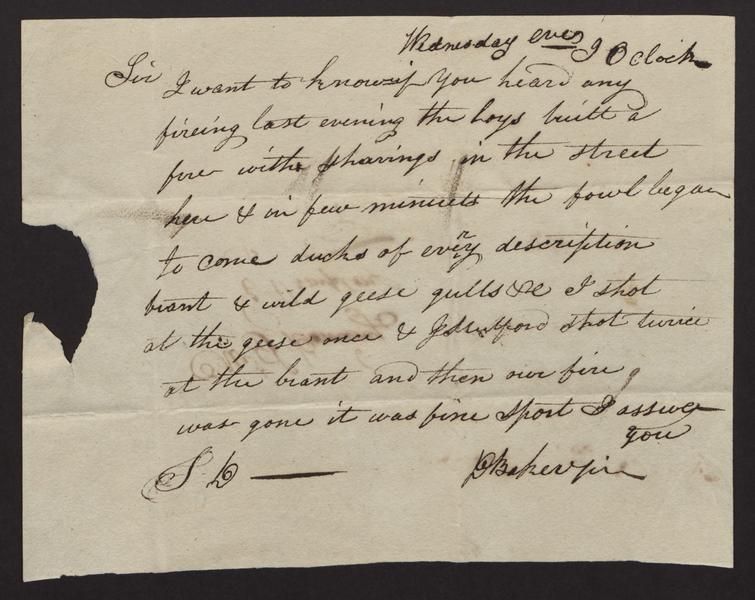 Wednesday eve 9 O clock
Sir
I want to know if You heard any
fireing last evening the boys built a
fire with shavings in the street
here & in few minuets the fowl began
to come ducks of every description
brant & wild geese gulls &c I shot
at the geese once & shot twice
at the brant and then our fire
was gone it was fine sport I assure
you
S D — Baker Jr